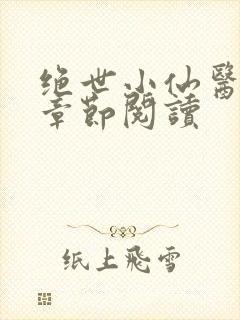 绝世小仙醫
章節閱讀
纸上飛雪